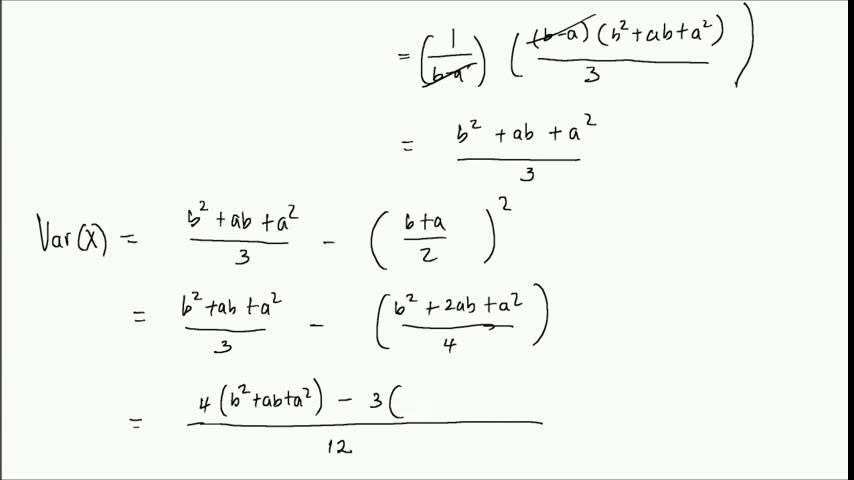 = (1/(b-a)) ((b-a)(b²+ab+a²)/3)
= (b² + ab + a²)/3
Var(X) = (b² + ab + a²)/3 - ((b+a)/2)²
= (b² + ab + a²)/3 - ((b² + 2ab + a²)/4)
= (4(b²+ab+a²) - 3( )/12